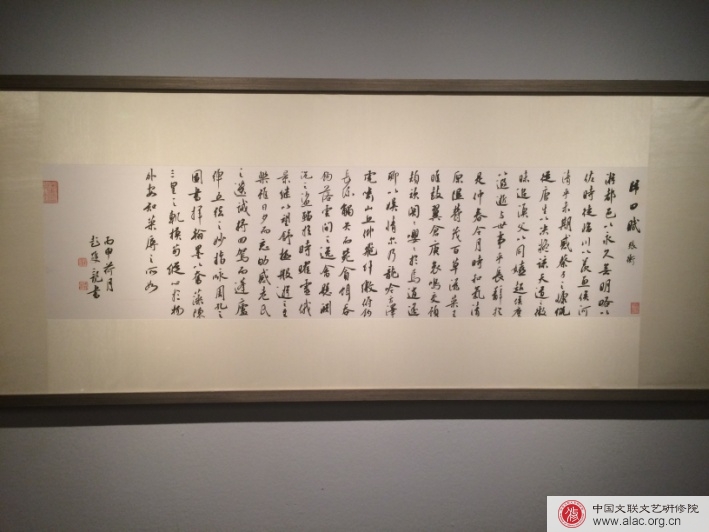 歸田賦 張衡
游都邑以永久無明略以
佐時徒臨川以羨魚俟河
清乎未期感蔡子之慷慨
從唐生以決疑諒天道之微
昧追漁父以同嬉超埃塵
以遐逝與世事乎長辭於
是仲春令月時和氣清
原隰鬱茂百草滋榮王
雎鼓翼倉庚哀鳴交頸
頡頏關關嚶嚶於焉逍遙
聊以娛情爾乃龍吟方澤
虎嘯山丘仰飛纖繳俯釣
長流觸矢而斃貪餌吞
鉤落雲間之逸禽懸淵
沉之鯊鰡於時曜靈俄
景繼以望舒極般遊之至
樂雖日夕而忘劬感老氏
之遺誡將迴駕而蓬廬
彈五絃之妙指詠周孔之
圖書揮翰墨以奮藻陳
三皇之軌模苟縱心於物
外安知榮辱之所如
丙申荷月
彭雙龍書
中国文联文艺研修院
www.alac.org.cn